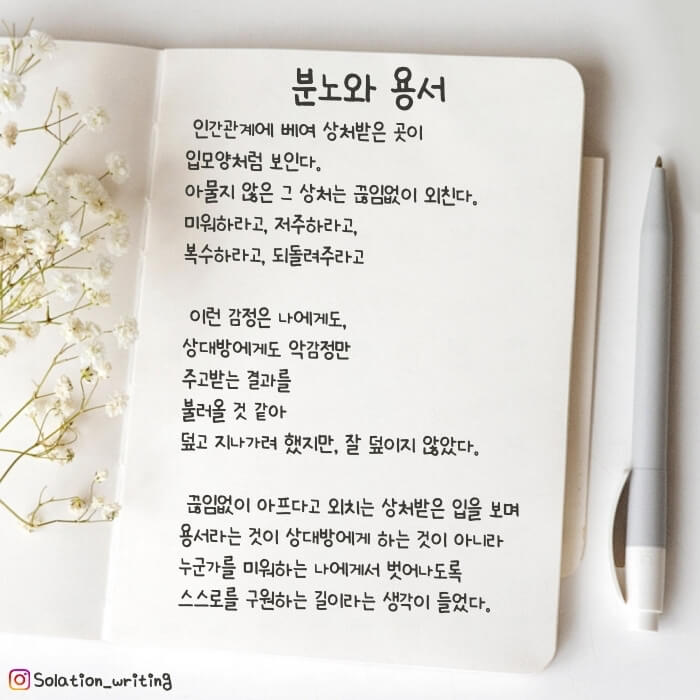 분노와 용서
인간관계에 베여 상처받은 곳이
입모양처럼 보인다.
아물지 않은 그 상처는 끊임없이 외친다.
미워하라고, 저주하라고,
복수하라고, 되돌려주라고
이런 감정은 나에게도,
상대방에게도 악감정만
주고받는 결과를
불러올 것 같아
덮고 지나가려 했지만, 잘 덮이지 않았다.
끊임없이 아프다고 외치는 상처받은 입을 보며
용서라는 것이 상대방에게 하는 것이 아니라
누군가를 미워하는 나에게서 벗어나도록
스스로를 구원하는 길이라는 생각이 들었다.
Solation_writing